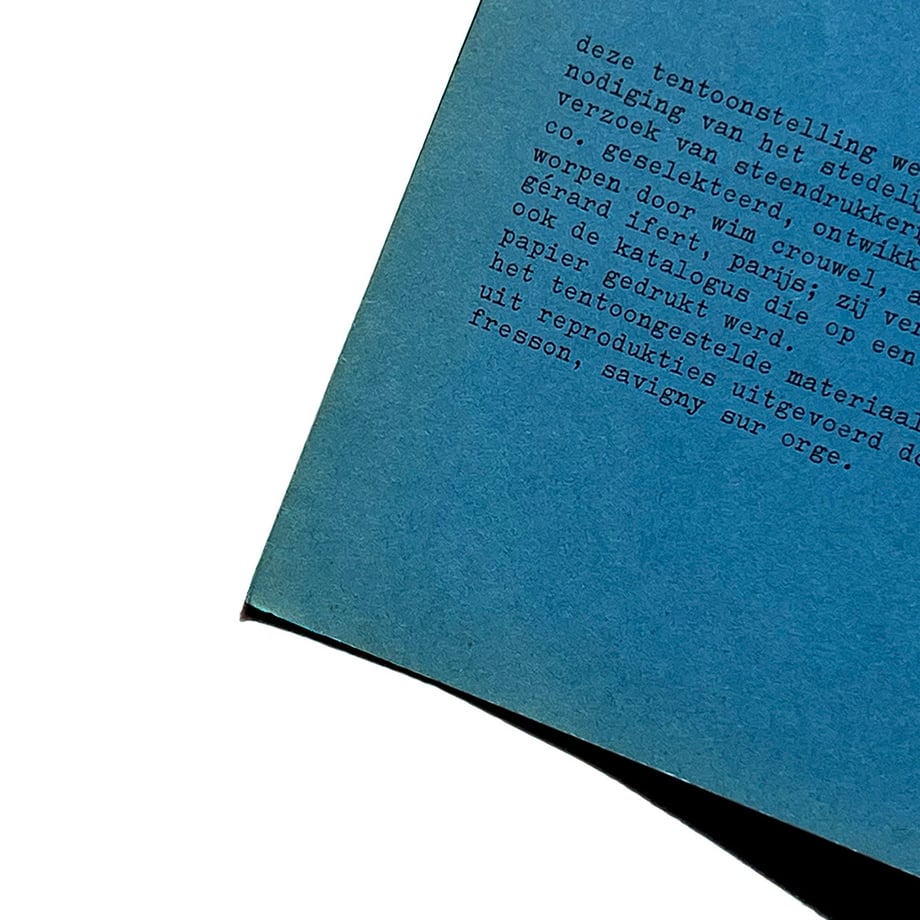 deze tentoonstelling we
nodiging van het stedelij
verzoek van steendrukkeri
co. geselekteerd, ontwikk
worpen door wim crouwel, a
gérard ifert, parijs; zij ver
ook de katalogus die op een
papier gedrukt werd.
het tentoongestelde materiaal
uit reprodukties uitgevoerd do
fresson, savigny sur orge.